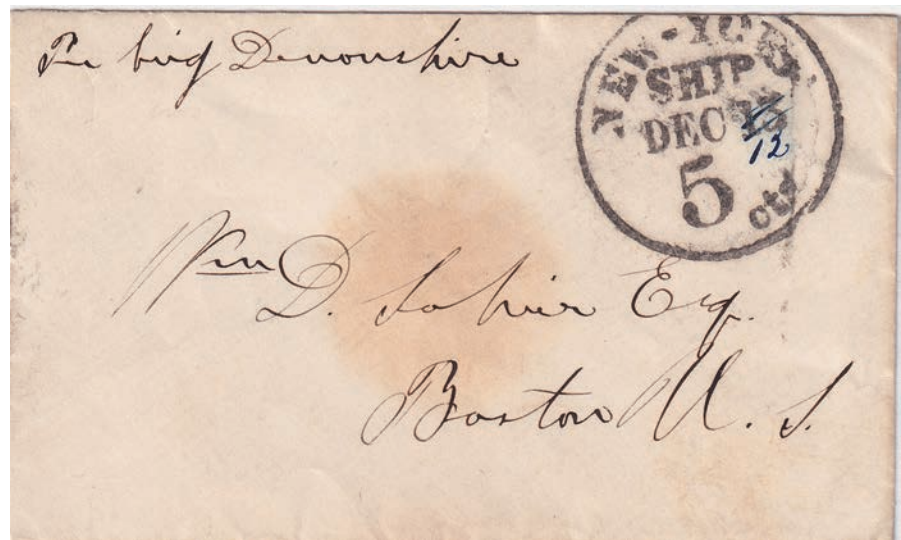 Per brig Devonshire
NEW-YORK
SHIP
DEC
12
5 cts
Wm D. Sohier Esq.
Boston U. S.